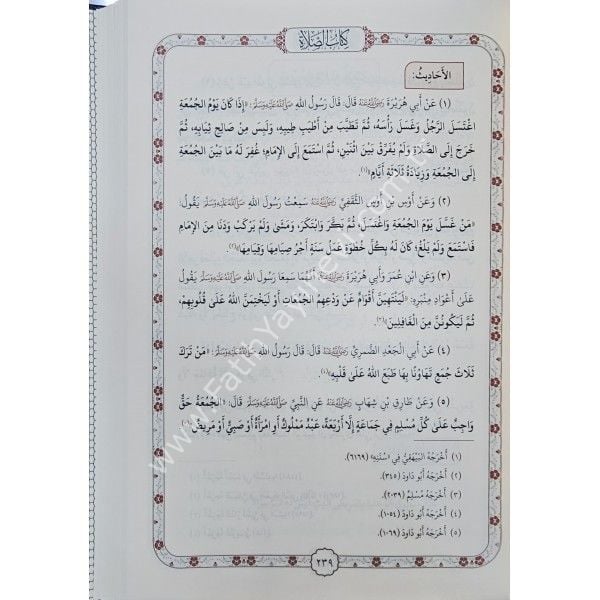 كتاب الصلاة
الأَحَادِيثُ:
(١) عَنْ أَبِي هُرَيْرَةَ رَضِيَ اللهُ عَنْهُ قَالَ: قَالَ رَسُولُ اللهِ صَلَّى اللهُ عَلَيْهِ وَسَلَّمَ: «إِذَا كَانَ يَوْمُ الجُمُعَةِ
اغْتَسَلَ الرَّجُلُ وَغَسَلَ رَأْسَهُ، ثُمَّ تَطَيَّبَ مِنْ أَطْيَبِ طِيبِهِ، وَلَبِسَ مِنْ صَالِحِ ثِيَابِهِ، ثُمَّ
خَرَجَ إِلَى الصَّلَاةِ وَلَمْ يُفَرِّقْ بَيْنَ اثْنَيْنِ، ثُمَّ اسْتَمَعَ إِلَى الإِمَامِ؛ غُفِرَ لَهُ مَا بَيْنَ الجُمُعَةِ
إِلَى الجُمُعَةِ وَزِيَادَةُ ثَلَاثَةِ أَيَّامٍ»(١).
(٢) وَعَنْ أَوْسِ بْنِ أَوْسٍ الثَّقَفِيِّ رَضِيَ اللهُ عَنْهُ سَمِعْتُ رَسُولَ اللهِ صَلَّى اللهُ عَلَيْهِ وَسَلَّمَ يَقُولُ:
«مَنْ غَسَّلَ يَوْمَ الجُمُعَةِ وَاغْتَسَلَ، ثُمَّ بَكَّرَ وَابْتَكَرَ، وَمَشَى وَلَمْ يَرْكَبْ وَدَنَا مِنَ الإِمَامِ
فَاسْتَمَعَ وَلَمْ يَلْغُ؛ كَانَ لَهُ بِكُلِّ خُطْوَةٍ عَمَلُ سَنَةٍ أَجْرُ صِيَامِهَا وَقِيَامِهَا»(٢).
(٣) وَعَنِ ابْنِ عُمَرَ وَأَبِي هُرَيْرَةَ رَضِيَ اللهُ عَنْهُ، أَنَّهُمَا سَمِعَا رَسُولَ اللهِ صَلَّى اللهُ عَلَيْهِ وَسَلَّمَ يَقُولُ
عَلَى أَعْوَادِ مِنْبَرِهِ: «لَيَنْتَهِيَنَّ أَقْوَامٌ عَنْ وَدْعِهِمُ الجُمُعَاتِ أَوْ لَيَخْتِمَنَّ اللهُ عَلَى قُلُوبِهِمْ،
ثُمَّ لَيَكُونُنَّ مِنَ الغَافِلِينَ»(٣).
(٤) عَنْ أَبِي الجَعْدِ الضَّمْرِيِّ رَضِيَ اللهُ عَنْهُ قَالَ: قَالَ رَسُولُ اللهِ صَلَّى اللهُ عَلَيْهِ وَسَلَّمَ: «مَنْ تَرَكَ
ثَلَاثَ جُمَعٍ تَهَاوُنًا بِهَا طَبَعَ اللهُ عَلَى قَلْبِهِ»(٤).
(٥) وَعَنْ طَارِقِ بْنِ شِهَابٍ رَضِيَ اللهُ عَنْهُ عَنِ النَّبِيِّ صَلَّى اللهُ عَلَيْهِ وَسَلَّمَ قَالَ: «الجُمُعَةُ حَقٌّ
وَاجِبٌ عَلَى كُلِّ مُسْلِمٍ فِي جَمَاعَةٍ إِلَّا أَرْبَعَةً: عَبْدٌ مَمْلُوكٌ أَوِ امْرَأَةٌ أَوْ صَبِيٌّ أَوْ مَرِيضٌ»(٥).
(١) أَخْرَجَهُ البَيْهَقِيُّ فِي «سُنَنِهِ» (٦١٦٩).
(٢) أَخْرَجَهُ أَبُو دَاودَ (٣٤٥).
(٣) أَخْرَجَهُ مُسْلِمٌ (٢٠٣٩).
(٤) أَخْرَجَهُ أَبُو دَاودَ (١٠٥٤).
(٥) أَخْرَجَهُ أَبُو دَاودَ (١٠٦٩).
٢٣٩
www.FatihYayinevi.com